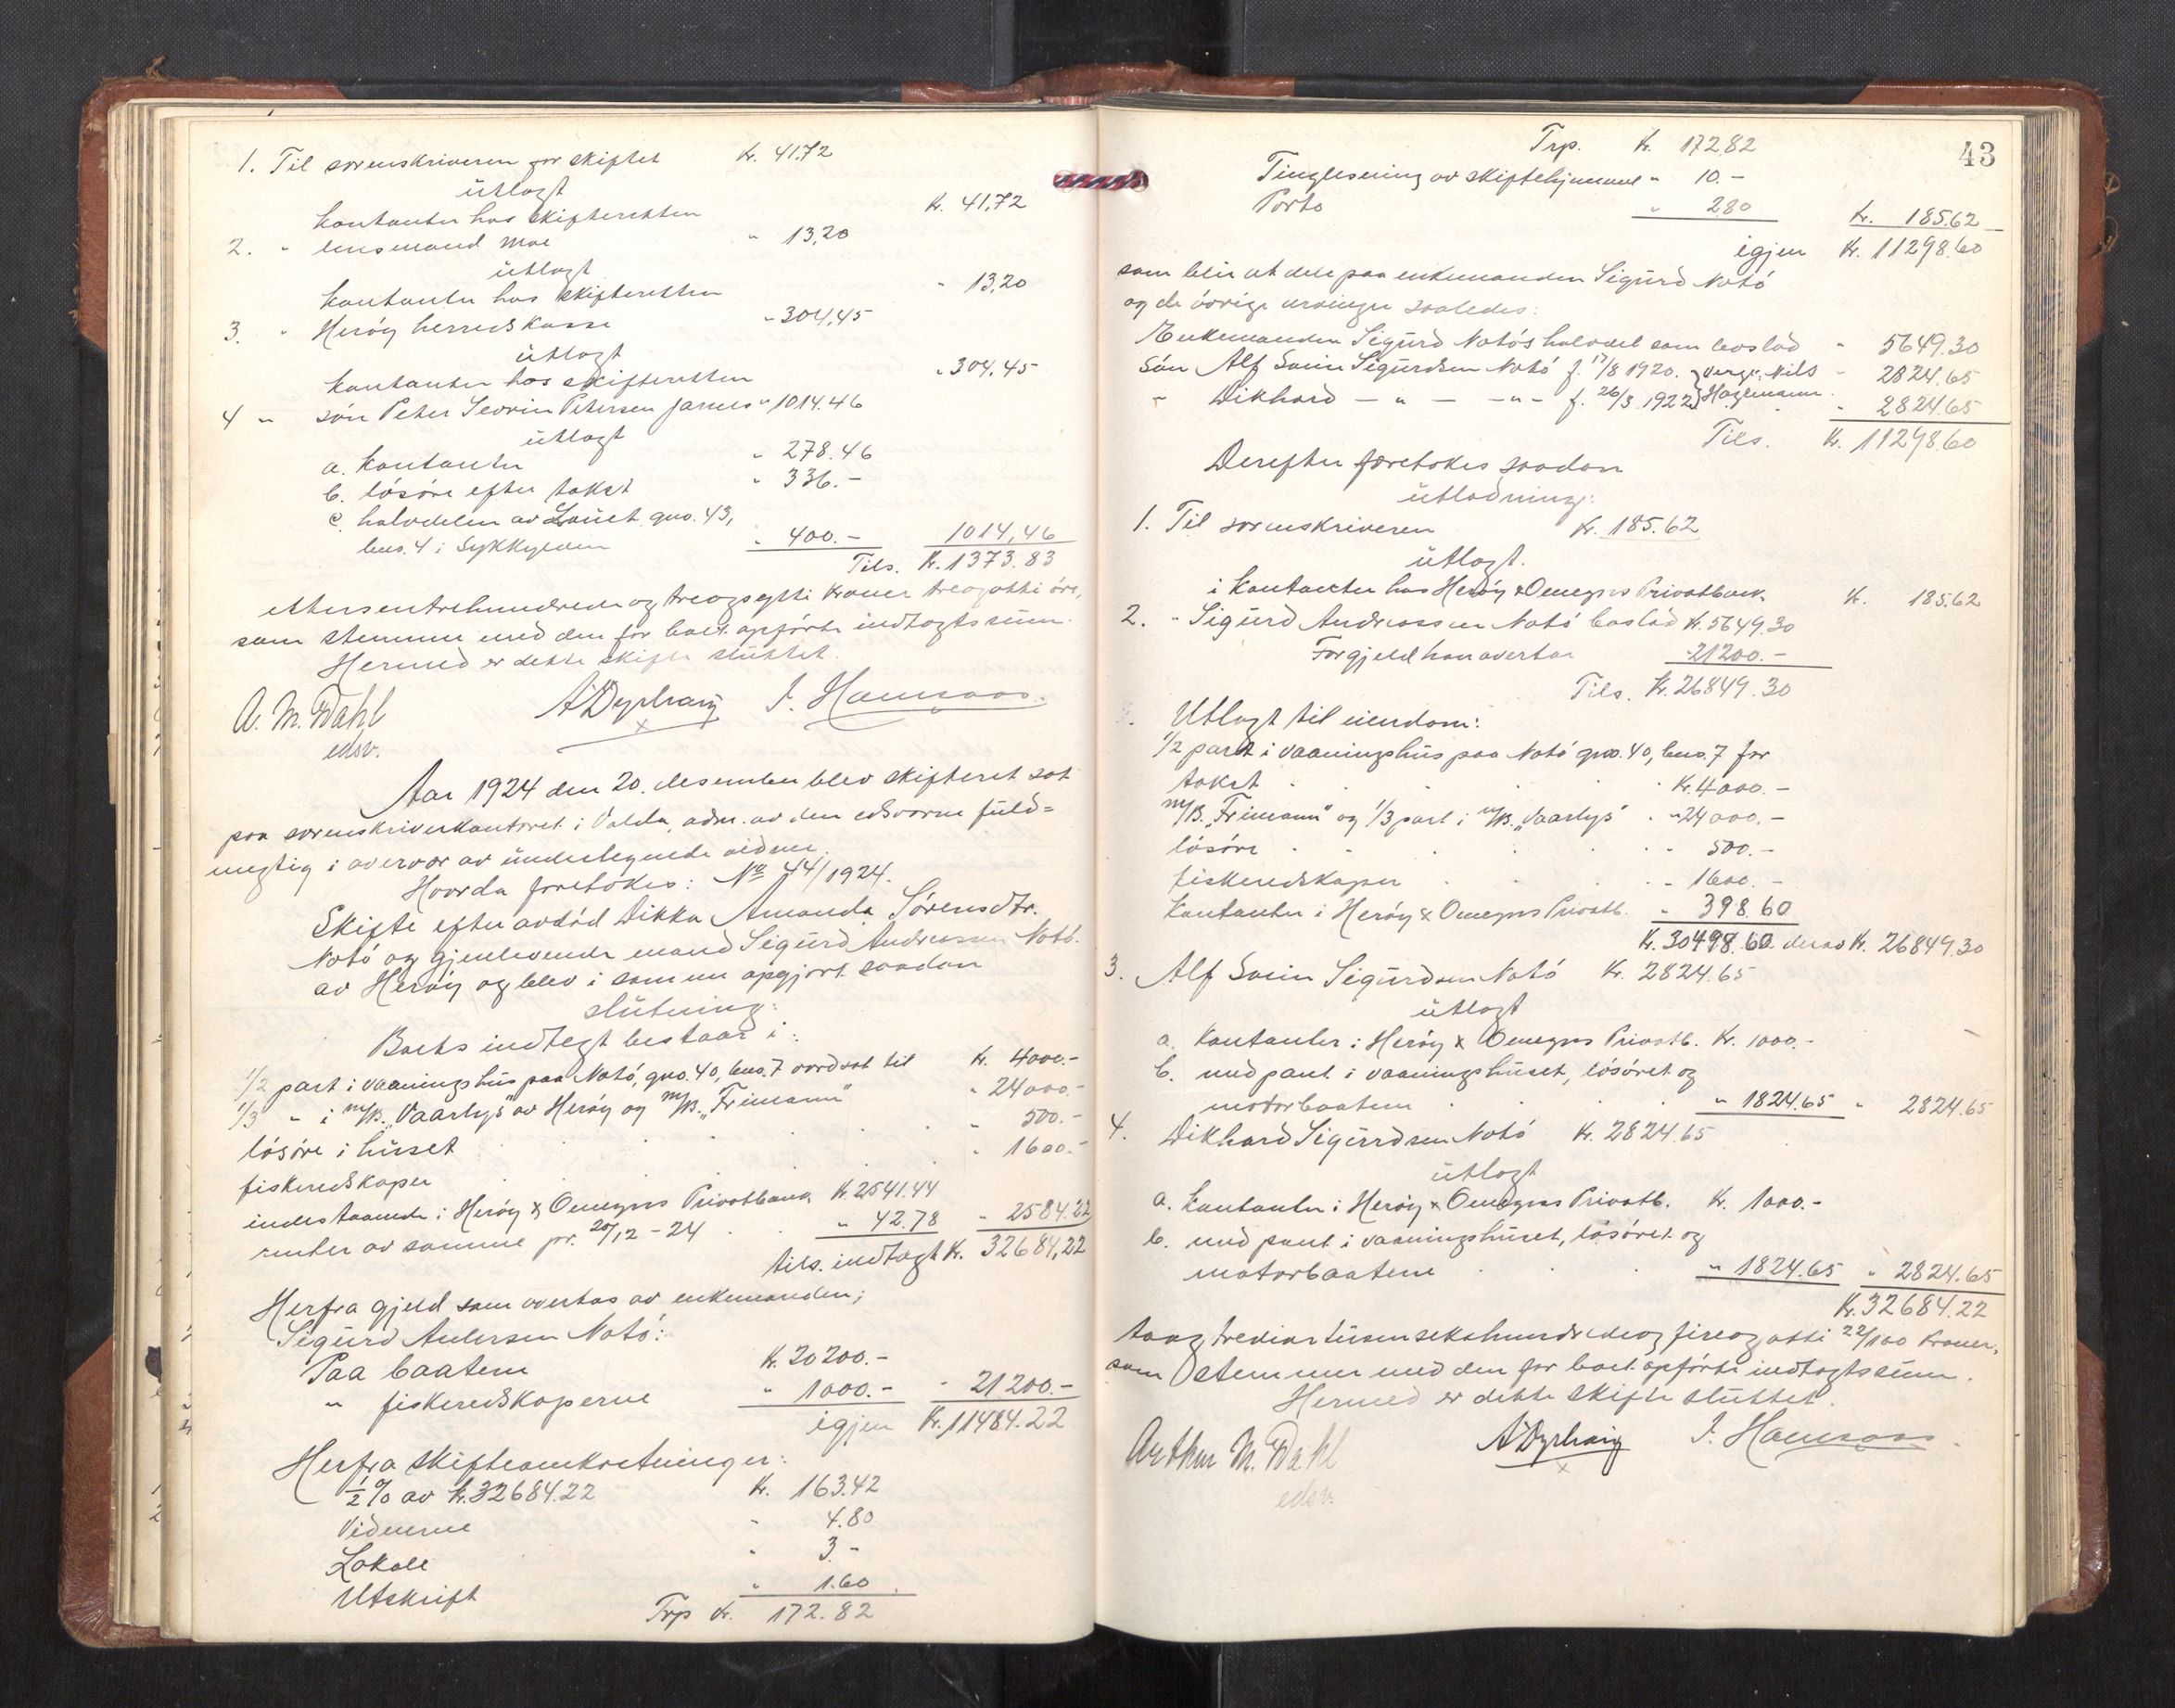 1. Til sorenskriveren for skiftet Kr. 41,72
utlagt
kontanter hos skifteretten Kr. 41,72
2. " lensmand Moe " 13,20
utlagt
kontanter hos skifteretten " 13,20
3. " Herøy herredskasse " 304,45
utlagt
kontanter hos skifteretten " 304,45
4 " søn Peter Severin Petersen Jarnes " 1014.46
utlagt
a. kontanter " 278.46
b. løsøre efter takst " 336.-
c. halvdelen av Lauet, gno. 43,
bno. 4 i Sykkylven " 400.- 1014,46
Tils. Kr. 1373.83
ettusentrehundrede og treogsytti kroner treogotti øre,
som stemmer med den for boet opførte indtægtssum.
Hermed er dette skifte sluttet.
A. M. Dahl ADyrhaug J. Hamraas.
edsv.
Aar 1924 den 20. desember blev skifteret sat
paa sorenskriverkontoret i Volda, adm. av den edsvorne fuld=
mægtig i overvær av undertegnede vidner.
Hvorda foretokes: No 44/1924.
Skifte efter avdød Dikka Amanda Sørensdtr.
Notø og gjenlevende mand Sigurd Andreassen Notø.
av Herøy og blev i samme opgjort saadan
slutning:
Boets indtegt bestaar i:
1/2 part i vaaningshus paa Notø, gno. 40, bno. 7 verdsat til Kr. 4000.-
1/3 " i m/B. "Vaarlys" av Herøy og m/B. "Frimann" " 24000.-
løsøre i huset " 500.-
fiskeredskaper " 1600.-
indestaaende i Herøy & Omegns Privatbank Kr. 2541.44
renter av samme pr. 20/12-24 " 42.78 " 2584.22
tils. indtægt Kr. 32684,22
Herfra gjeld som overtas av enkemanden;
Sigurd Andersen Notø:
Paa baatene Kr. 20200.-
" fiskeredskaperne " 1000.- " 21200.-
igjen Kr. 11484.22
Herfra skifteomkostninger:
1/2 % av Kr. 32684.22 Kr. 163.42
Vidnerne " 4.80
Lokale " 3.-
Utskrift " 1.60
Trp Kr. 172.82
43
Trp. Kr. 172,82
Tinglesning av skiftehjemmel " 10.-
Porto " 2.80 Kr. 185.62
igjen Kr. 11298.60
som blir at dele paa enkemanden Sigurd Notø
og de øvrige arvinger saaledes:
Enkemanden Sigurd Notøs halvdel som boslod " 5649.30
Søn Alf Svein Sigurdsen Notø f. 17/8 1920. } verge: Nils " 2824.65
" Dikhard — " — — " — f. 26/3 1922 } Hagensen. " 2824.65
Tils. Kr. 11298.60
Derefter foretokes saadan
utlodning:
1. Til sorenskriveren Kr. 185.62
utlagt.
i kontanter hos Herøy & Omegns Privatbank Kr. 185.62
2. " Sigurd Andreassen Notø boslod Kr. 5649.30
For gjeld han overtar " 21200.-
Tils. Kr. 26849.30
Utlagt til eiendom:
1/2 part i vaaningshus paa Notø gno. 40, bno. 7 for
takst Kr. 4000.-
m/B. "Frimann" og 1/3 part i m/B. "Vaarlys" " 24000.-
løsøre " 500.-
fiskeredskaper " 1600.-
Kontanter i Herøy & Omegns Privatb. " 398.60
Kr. 30498.60 derav Kr. 26849.30
3. Alf Svein Sigurdsen Notø Kr. 2824.65
utlagt
a. kontanter i Herøy & Omegns Privatb. Kr. 1000.-
b. med pant i vaaningshuset, løsøret og
motorbaatene " 1824.65 " 2824.65
4. Dikhard Sigurdsen Notø Kr. 2824.65
utlagt
a. kontanter i Herøy & Omegns Privatb. Kr. 1000.-
b. med pant i vaaningshuset, løsøret og
motorbaatene " 1824.65 " 2824.65
Kr. 32684.22
toogtredivetusensekshundredeogfireogotti 22/100 kroner,
som stemmer med den for boet opførte indtægtssum.
Hermed er dette skifte sluttet.
Arthur M. Dahl ADyrhaug J. Hamraas.
edsv.